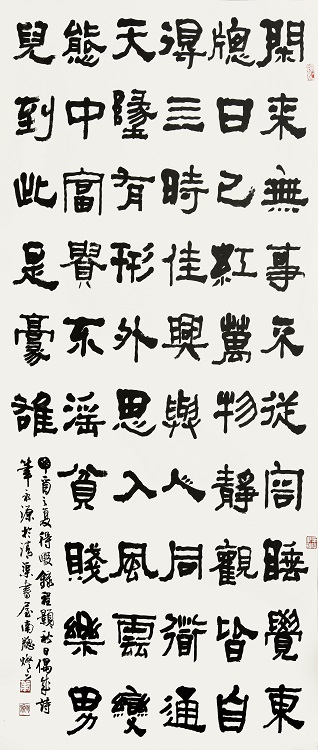 閑來無事不從容睡覺東
牕日已紅萬物靜觀皆自
得三時佳興與人同衟通
天墬有形外思入風雲變
態中富貴不淫貧賤樂男
兒到此是豪雄
酉之夏得暇錄程顥秋日偶成詩
永源於清渠書屋南牕燈下